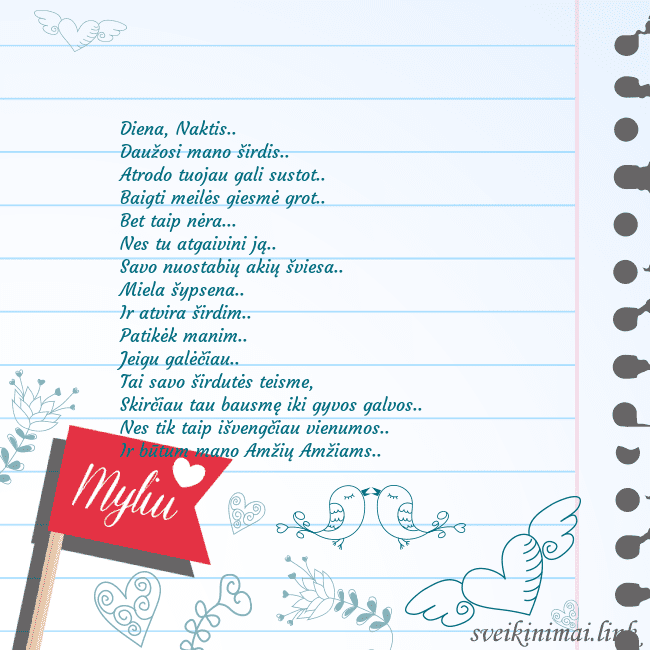 Diena, Naktis..
Daužosi mano širdis..
Atrodo tuojau gali sustot..
Baigti meilės giesmė grot..
Bet taip nėra...
Nes tu atgaivini ją..
Savo nuostabių akių šviesa..
Miela šypsena..
Ir atvira širdim..
Patikėk manim..
Jeigu galėčiau..
Tai savo širdutės teisme,
Skirčiau tau bausmę iki gyvos galvos..
Nes tik taip išvengčiau vienumos..
Ir būtum mano Amžių Amžiams..
Myliu
sveikinimai.link